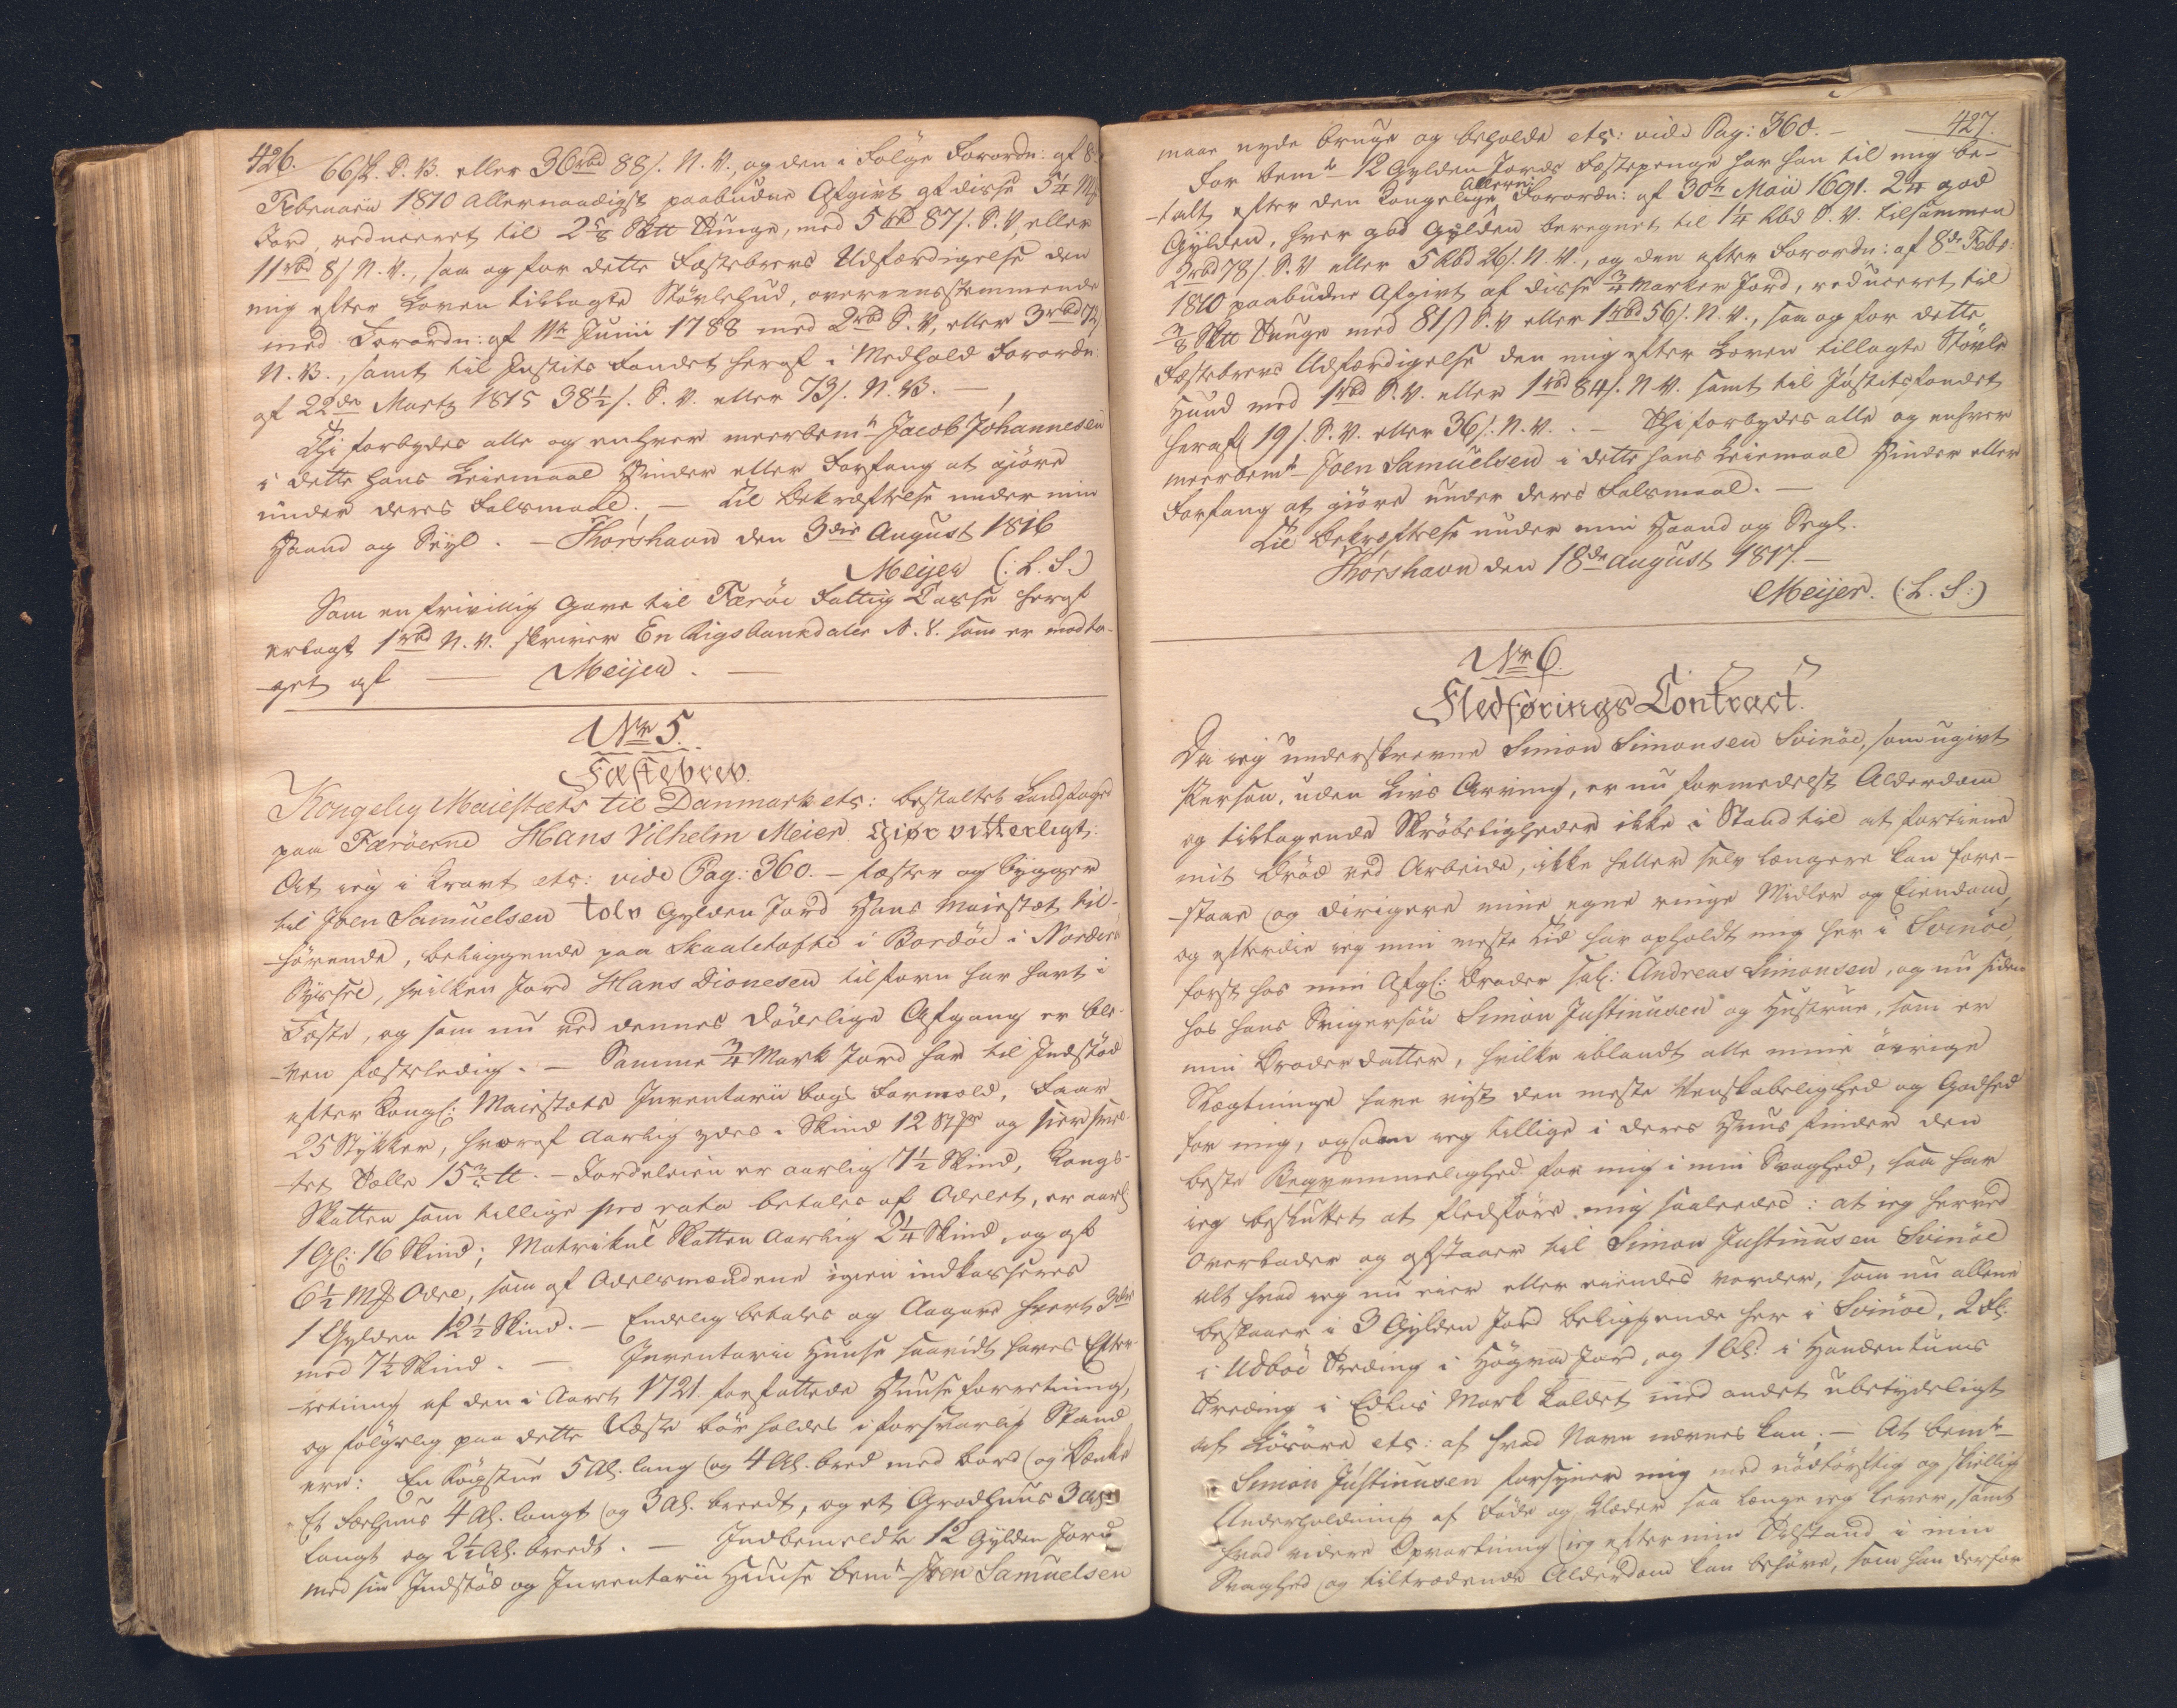 426.
66 ß. S. V. eller 36 rbd 88 ß. N. V., og den i Følge Forordn: af 8
Februarii 1810 allernaadigst paabudne Afgivt af disse 5¼ Mk
Jord, reduceret til 2⅝ Sktt Tunge, med 5 rbd 87 ß. S. V, eller
11 rbd 8 ß N. V., saa og for dette Fæstebrevs Udfærdigelse den
mig efter Loven tillagte Støvlehud, overeensstemmende
med Forordn: af 11te Junii 1788 med 2 rbd S. V, eller 3 rbd 72
N. V., samt til Justits Fondet heraf i Medhold Forordn
af 22de Martz 1815 38½ ß. S. V. eller 73 ß. N. V. —
Thi forbydes alle og enhver meerbemte Jacob Johannesen
i dette hans Leiemaal Hinder eller Forfang at giøre
under deres Falsmaal. — Til Bekræftelse under min
Haand og Seyl. — Thorshavn den 3die August 1816
Meijer (:L.S.)
Som en frivillig Gave til Færøe Fattig Casse heraf
erlagt 1 rbd N. V. skriver En Rigsbankdaler N. V. som er modta-
-get af — Meijer. —
No 5.
Fæstebrev.
Kongelig Maiestæts til Danmark etc: bestaltet Landfoged
paa Færøerne Hans Vilhelm Meier. Giør vitterligt:
At ieg i Kravt etc: vide Pag: 360. — fæster og bygger
til Joen Samuelsen tolv Gylden Jord Hans Maiestæt til-
-hørende, beliggende paa Skaaletofte i Bordøe i Norderø
Syssel, hvilken Jord Hans Dionesen tilforn har havt i
Fæste, og som nu ved dennes dødelige Afgang er ble-
-ven fæsteledig. — Samme ¾ Mark Jord har til Indstød
efter Kongl: Maiestæts Inventarii bogs Formeld, Faar
25 Stykker, hvoraf aarlig ydes i Skind 12 Stkr og
-tet Talle 15¾ tt. — Jordeleien er aarlig 7½ Skind, Kongs-
Skatten som tillige pro rata betales af Odelet, er aarl
1 Gl: 16 Skind; Matrikul Skatten aarlig 2¼ Skind, og af
6½ Mk Odel, som af Odelsmændene igien indkasseres
1 Gylden 12½ Skind. — Endelig betales og Aagave hvert 3die
med 7½ Skind. — Inventarii Huuse saavidt haves Efter-
-retning af den i Aaret 1721 forfattede Huuse forretning,
og følgelig paa dette Fæste bør holdes i forsvarlig Stand
ere: En Røgstue 5 Al. lang og 4 Al. bred med bord og Bænke
Et Færhuus 4 Al. langt og 3 Al. breedt, og et Grødhuus 3 Al
langt og 2½ Al. breedt. — Indbemeldte 12 Gylden Jord
med sin Indstød og Inventarii Huuse bemte Joen Samuelsen
427.
maae nyde bruge og beholde etc: vide Pag: 360. —
For bemte 12 Gylden Jords Fæstepenge har han til mig be-
-talt efter den Kongelige Allern: Forordn: af 30te Maii 1691. 2¼ god
Gylden, hver god Gylden beregnet til 1¼ Rbd S. V. tilsammen
2 rbd 78 ß. S. V eller 5 Rbd 26 ß. N. V., og den efter Forordn: af 8de Febr:
1810 paabudne Afgivt af disse ¾ Marker Jord, reduceret til
⅜ Sktt Tunge med 81 ß S. V eller 1 rbd 56 ß. N. V., saa og for dette
Fæstebrevs Udfærdigelse den mig efter Loven tillagte Støvle
Huud med 1 rbd S. V. eller 1 rbd 84 ß. N. V. samt til Justitsfondet
heraf 19 ß. S. V. eller 36 ß. N. V. . — Thi forbydes alle og enhver
meerbemte Joen Samuelsen i dette hans Leiemaal Hinder eller
Forfang at giøre under deres Falsmaal. —
Til Bekræftelse under min Haand og Segl.
Thorshavn den 18de August 1817. —
Meijer. (:L.S:)
No 6.
Fledførings Contract.
Da ieg underskrevne Simon Simonsen Svinøe, som ugivt
Person, uden Livs Arving, er nu formedelst Alderdom
og tiltagende Skrøbeligheder ikke i Stand til at fortiene
mit Brød ved Arbeide, ikke heller selv længere kan fore-
-staae og dirigere mine egne ringe Midler og Eiendom,
og efterdie ieg min meste Tid har opholdt mig her i Svinøe,
først hos min Afgl: Broder sal: Andreas Simonsen, og nu siden
hos hans Svigersøn Simon Justinusen og Hustrue, som er
min Broderdatter, hvilke iblandt alle mine øvrige
Slægtninge have vist den meste Venskabelighed og Godhed
for mig, ogsaa ieg tillige i deres Huus finder den
beste Beqvemmelighed for mig i min Svaghed, saa har
ieg besluttet at fledføre mig saaledes: at ieg herved
overlader og afstaaer til Simon Justinusen Svinøe
alt hvad ieg nu eier eller eiendes vorder, som nu allene
bestaaer i 3 Gylden Jord beliggende her i Svinøe, 2 Gl.
i Udbøe Treding i Høgna Jord, og 1 Gl: i Handentuns
Treding i Edlis Mark kaldet med andet ubetydeligt
af Løsøre etc: af hvad Navn nævnes kan; — At bemte
Simon Justinusen forsyner mig med nødtørftig og skiellig
Underholdning af Føde og Klæder saa længe ieg lever, samt
hvad videre Opvartning ieg efter min Tilstand i min
Svaghed og tiltrædende Alderdom kan behøve, som han derfor